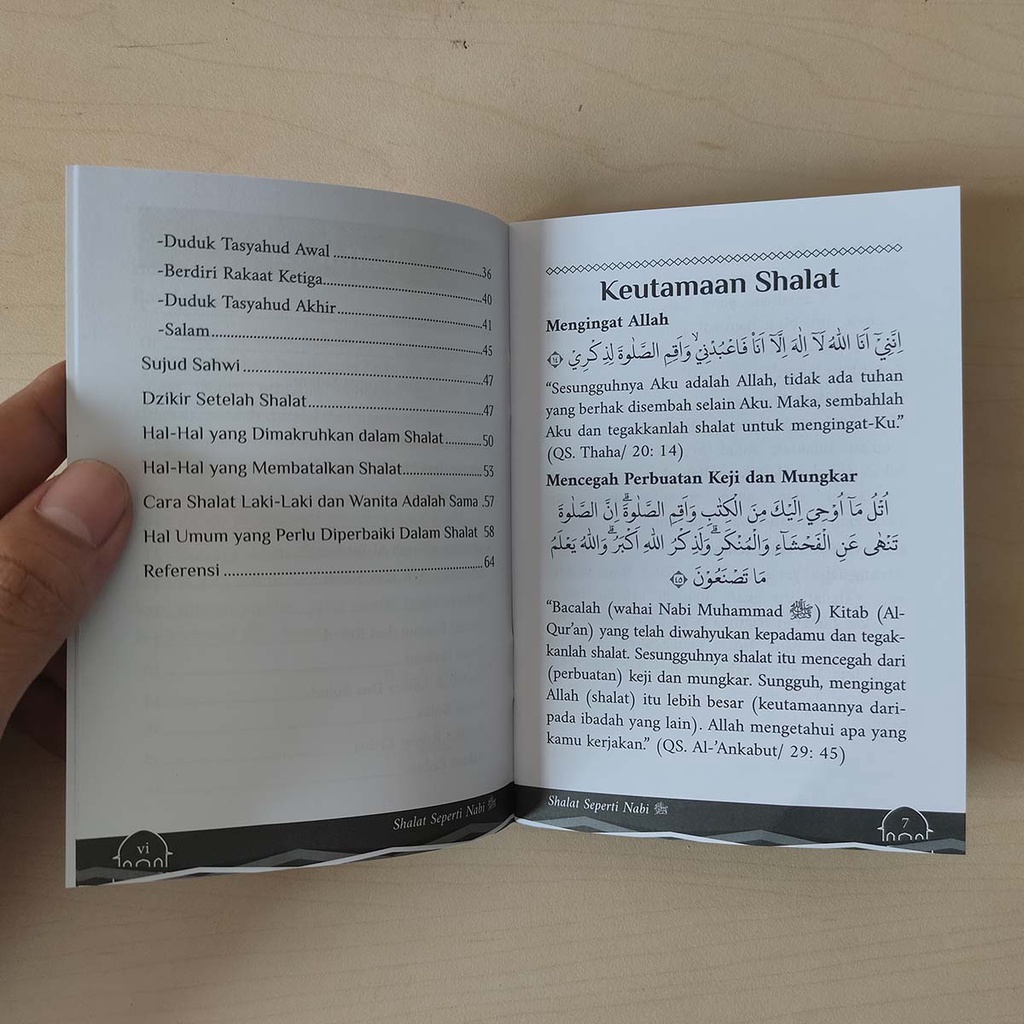 -Duduk Tasyahud Awal ........................................36
-Berdiri Rakaat Ketiga........................................40
-Duduk Tasyahud Akhir........................................41
-Salam........................................45
Sujud Sahwi........................................47
Dzikir Setelah Shalat........................................47
Hal-Hal yang Dimakruhkan dalam Shalat..........50
Hal-Hal yang Membatalkan Shalat....................53
Cara Shalat Laki-Laki dan Wanita Adalah Sama .57
Hal Umum yang Perlu Diperbaiki Dalam Shalat 58
Referensi ........................................64
Shalat Seperti Nabi ﷺ
vi
Keutamaan Shalat
Mengingat Allah
اِنَّنِيْٓ اَنَا اللّٰهُ لَآ اِلٰهَ اِلَّآ اَنَا۠ فَاعْبُدْنِيْۙ وَاَقِمِ الصَّلٰوةَ لِذِكْرِيْ ۝١٤
“Sesungguhnya Aku adalah Allah, tidak ada tuhan
yang berhak disembah selain Aku. Maka, sembahlah
Aku dan tegakkanlah shalat untuk mengingat-Ku.”
(QS. Thaha/ 20: 14)
Mencegah Perbuatan Keji dan Mungkar
اُتْلُ مَآ اُوْحِيَ اِلَيْكَ مِنَ الْكِتٰبِ وَاَقِمِ الصَّلٰوةَۗ اِنَّ الصَّلٰوةَ
تَنْهٰى عَنِ الْفَحْشَاۤءِ وَالْمُنْكَرِۗ وَلَذِكْرُ اللّٰهِ اَكْبَرُۗ وَاللّٰهُ يَعْلَمُ
مَا تَصْنَعُوْنَ ۝٤٥
“Bacalah (wahai Nabi Muhammad ﷺ) Kitab (Al-
Qur’an) yang telah diwahyukan kepadamu dan tegak-
kanlah shalat. Sesungguhnya shalat itu mencegah dari
(perbuatan) keji dan mungkar. Sungguh, mengingat
Allah (shalat) itu lebih besar (keutamaannya dari-
pada ibadah yang lain). Allah mengetahui apa yang
kamu kerjakan.” (QS. Al-’Ankabut/ 29: 45)
Shalat Seperti Nabi ﷺ
7